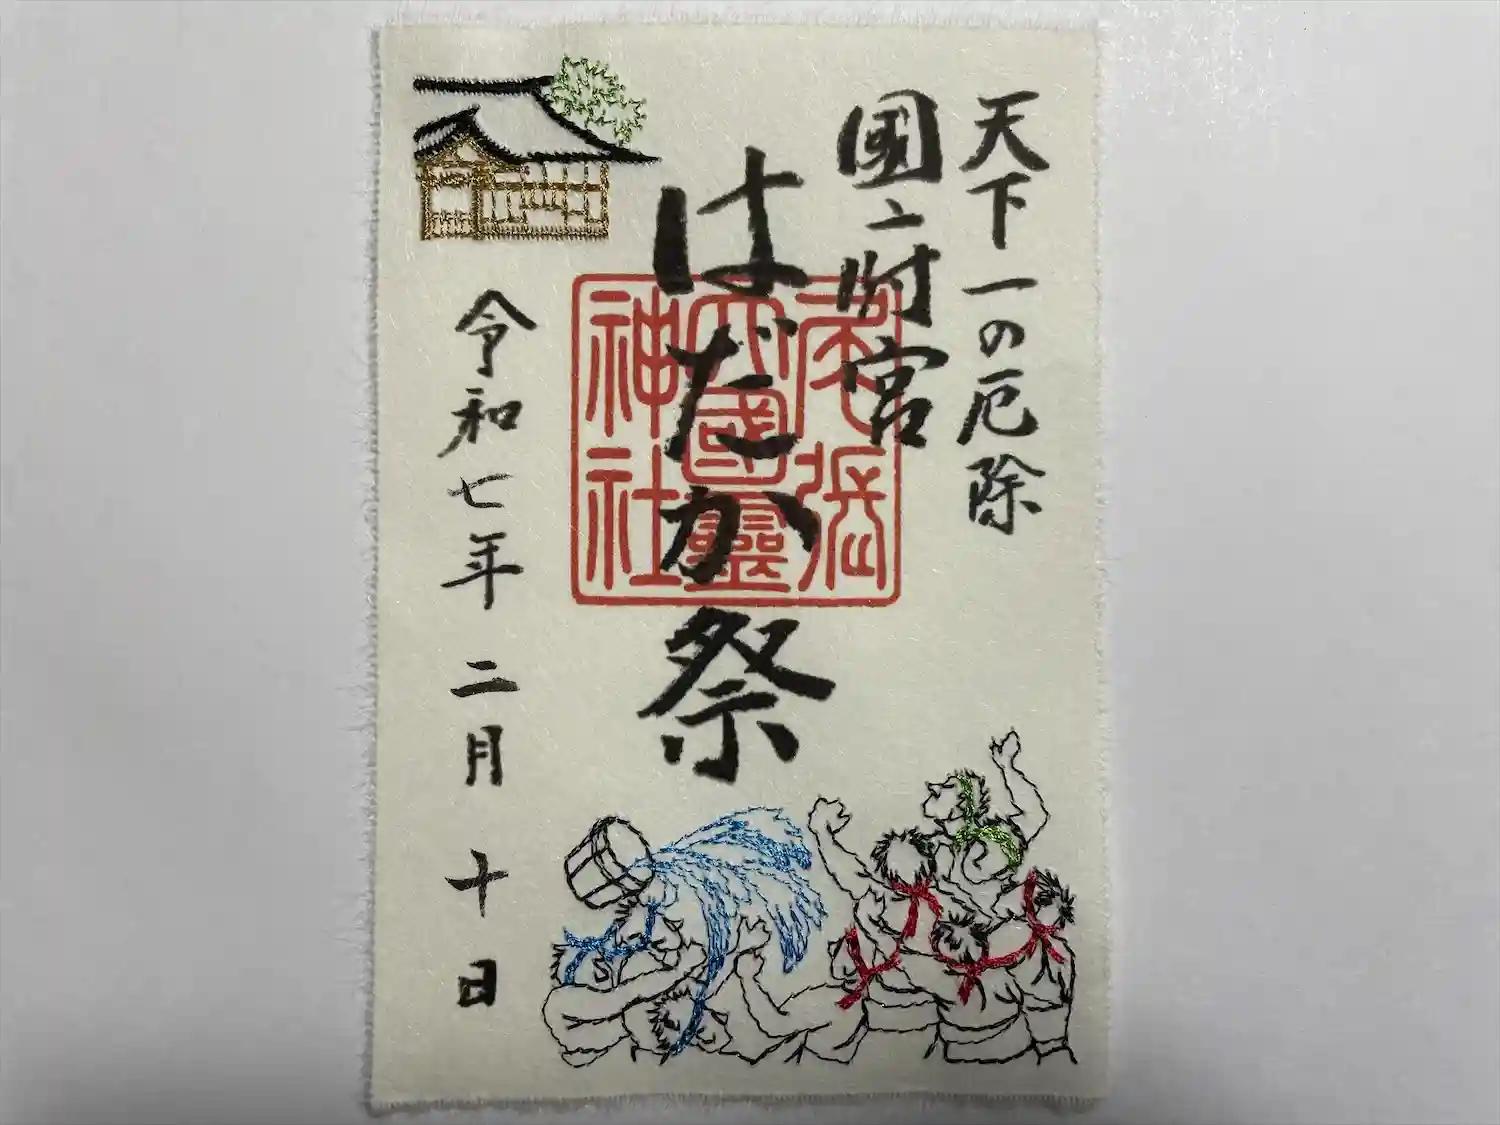 天下一の厄除
國府宮
はだか祭
尾張
大國霊
神社
令和七年二月十日